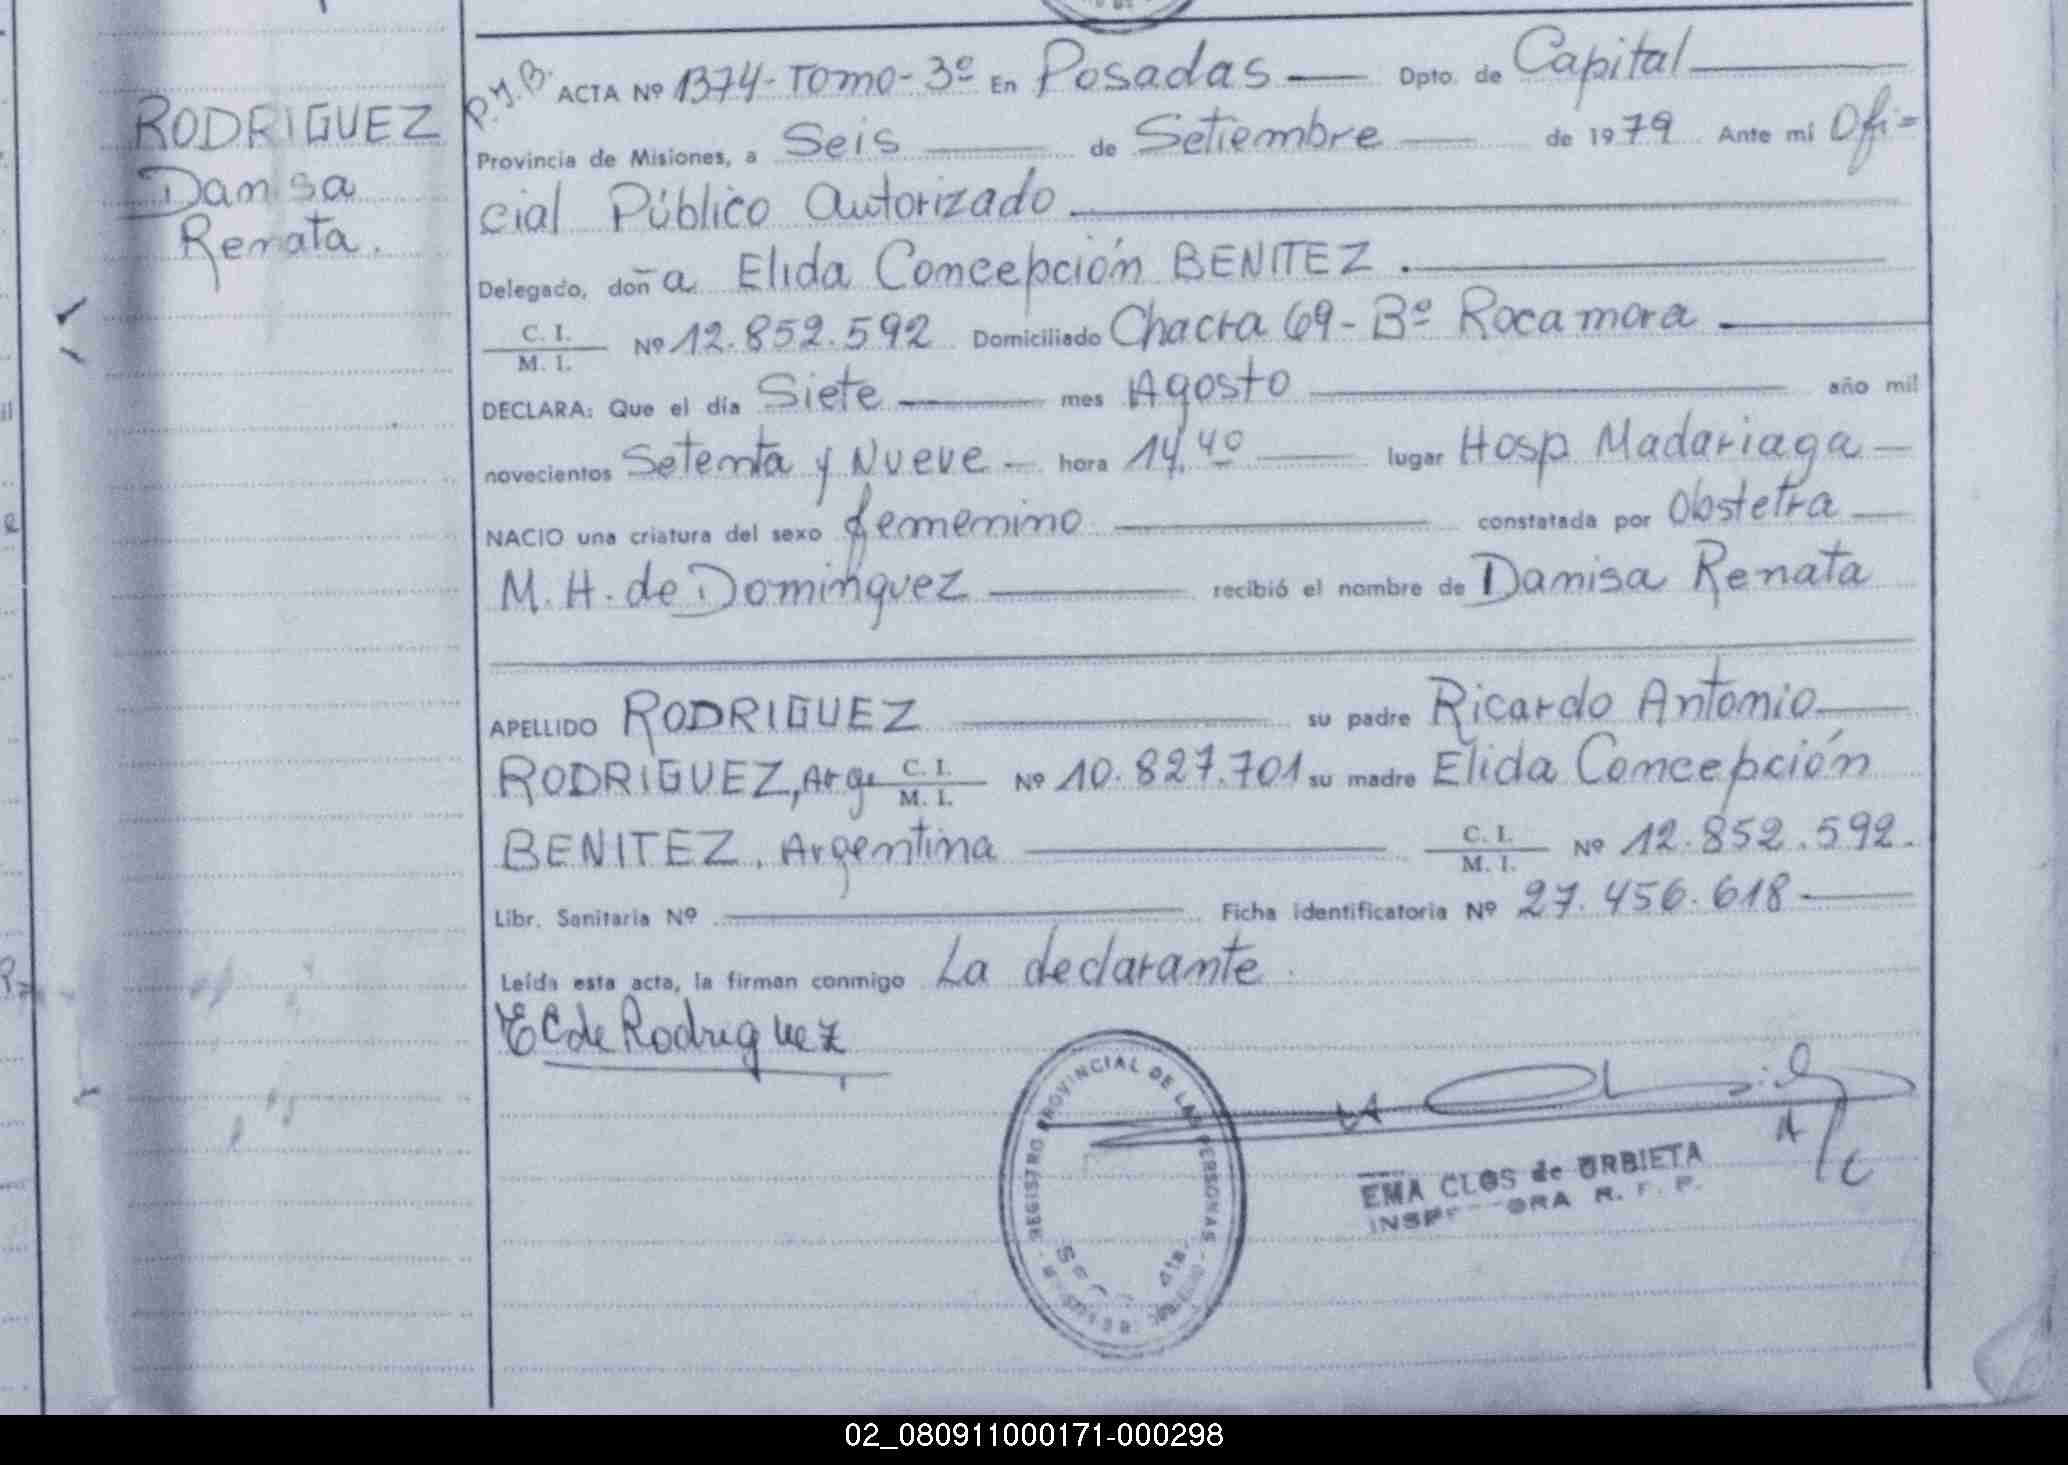 RODRIGUEZ
Danisa
Renata.
P.J.B. ACTA Nº 1374-Tomo-3º En Posadas Dpto. de Capital
Provincia de Misiones, a Seis de Setiembre de 1979 Ante mí Ofi=
cial Público Autorizado
Delegado, doña Elida Concepción BENITEZ.
C. I.
M. I. Nº 12.852.592 Domiciliado Chacra 69 - Bº Rocamora
DECLARA: Que el día Siete mes Agosto año mil
novecientos Setenta y Nueve hora 14,40 lugar Hosp Madariaga
NACIO una criatura del sexo femenino constatada por Obstetra
M. H. de Dominguez recibió el nombre de Danisa Renata
APELLIDO RODRIGUEZ su padre Ricardo Antonio
RODRIGUEZ, Arg. C. I.
M. I. Nº 10.827.701 su madre Elida Concepción
BENITEZ, Argentina C. I.
M. I. Nº 12.852.592.
Libr. Sanitaria Nº Ficha identificatoria Nº 27.456.618
Leída esta acta, la firman conmigo La declarante.
EC de Rodriguez
REGISTRO PROVINCIAL DE LAS PERSONAS
A/C
EMA CLOS de URBIETA
R.
02_080911000171-000298